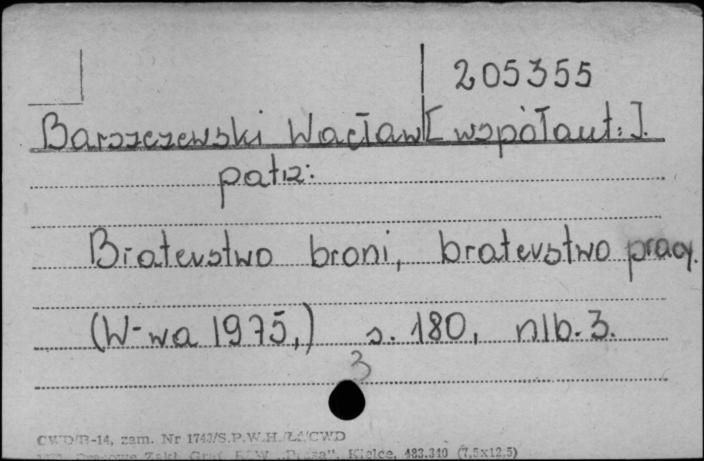 205355
Barszczewski Wacław [współaut:].
patrz:
Braterstwo broni, braterstwo pracy.
(W-wa 1975,) s. 180, nlb. 3.
3
CWD/B-14, zam. Nr 1743/S.P.W.H./Zł/CWD
Prasowe Zakł. Graf. RSW „Prasa", Kielce, 483.340 (7,5x12,5)